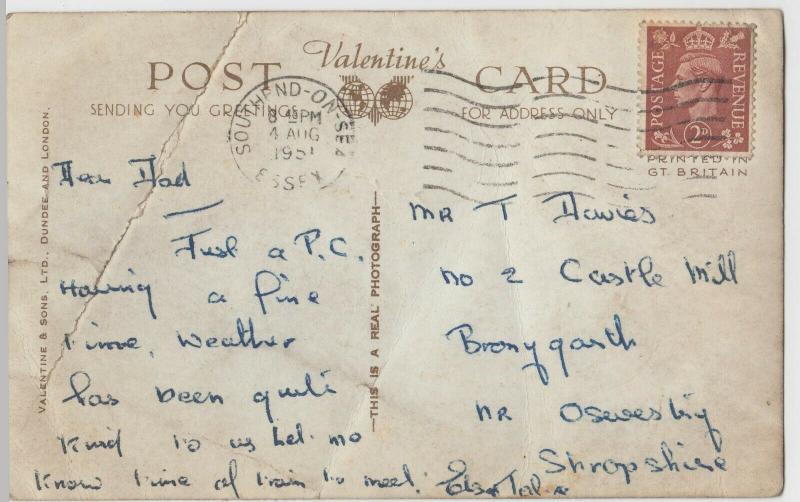 Valentine's
POST CARD
SENDING YOU GREETINGS
FOR ADDRESS ONLY
SOUTHEND-ON-SEA
4 AUG
1951
ESSEX
POSTAGE REVENUE
2D
PRINTED IN
GT. BRITAIN
VALENTINE & SONS, LTD., DUNDEE AND LONDON.
—THIS IS A REAL PHOTOGRAPH—
Dear Dad
Just a P.C.
Having a fine
time, weather
has been quite
kind to us let. me
know time of train to meet.
MR T Davies
no 2 Castle Mill
Bronygarth
nr Oswestry
Shropshire